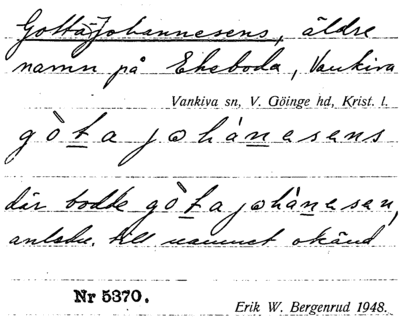 Gottajohannesens, äldre
namn på Eksboda, Vankiva
Vankiva sn, V. Göinge hd, Krist. l.
gò̀ṯa jωhá̱nesens
där bodde gò̱ta jωhàṉesen,
anledn. till namnet okänd
Nr 5370.
Erik W. Bergenrud 1948.